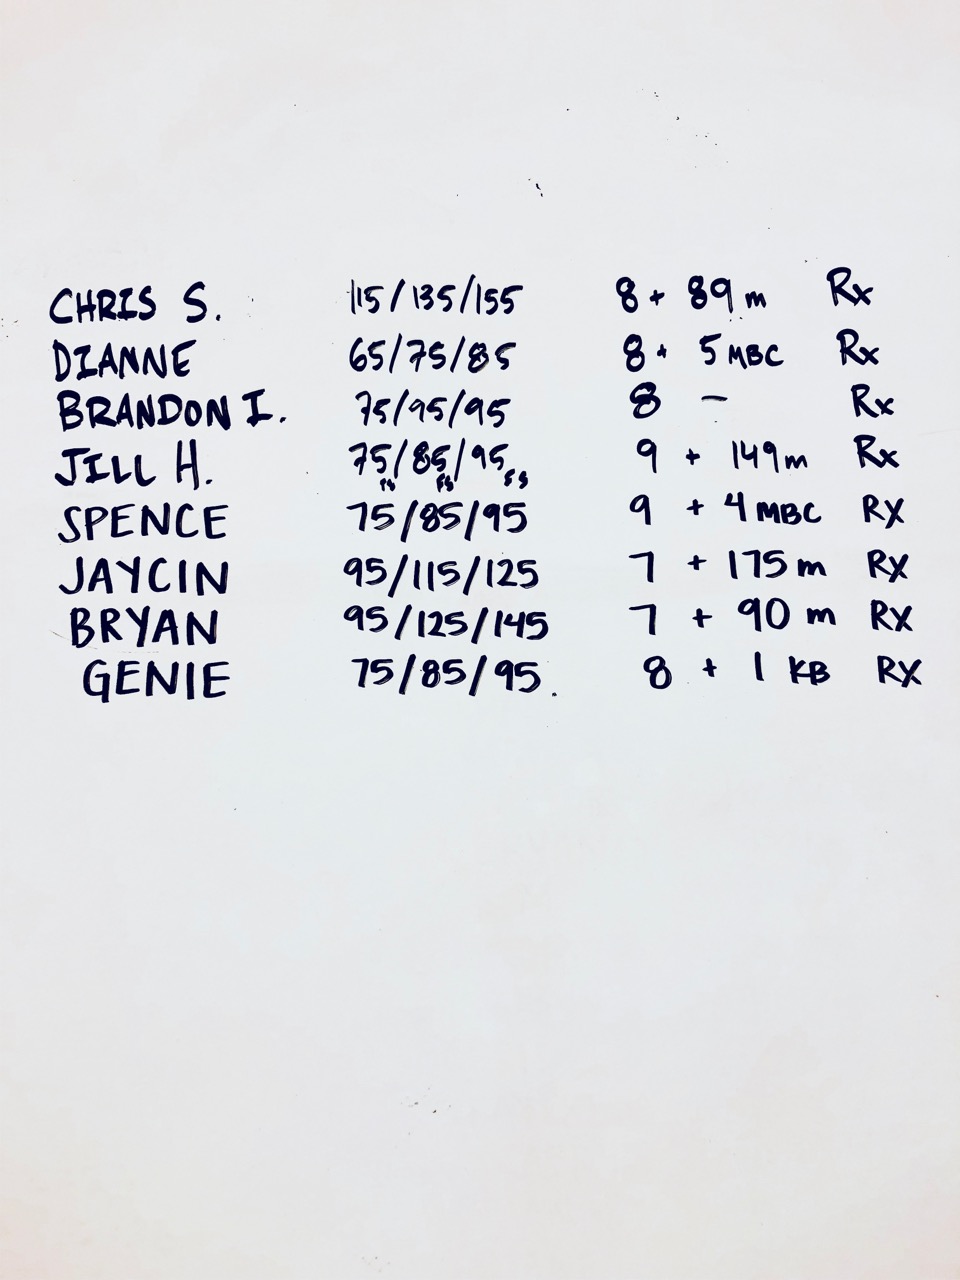 CHRIS S. 115/135/155 8 + 89 m Rx
DIANNE 65/75/85 8 + 5 MBC Rx
BRANDON I. 75/95/95 8 - Rx
JILL H. 75/85/95 9 + 149 m Rx
FS FS FS
SPENCE 75/85/95 9 + 4 MBC RX
JAYCIN 95/115/125 7 + 175 m RX
BRYAN 95/125/145 7 + 90 m RX
GENIE 75/85/95. 8 + 1 KB RX